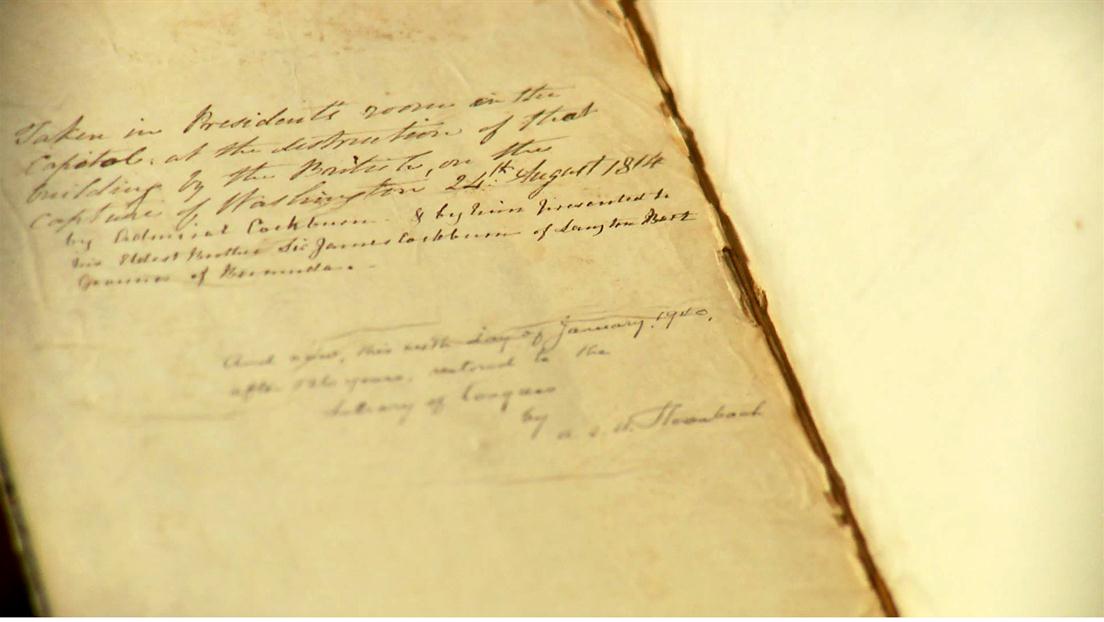 Taken in President's room in the
Capitol, at the destruction of that
building by the British, on the
capture of Washington 24th August 1814
by Admiral Cockburn & by him presented to
his Eldest Brother Sir James Cockburn of Langton Bart
Governor of Bermuda.
And now, this sixth day of January, 1940,
after 126 years, restored to the
Library of Congress
by A. S. W. Rosenbach